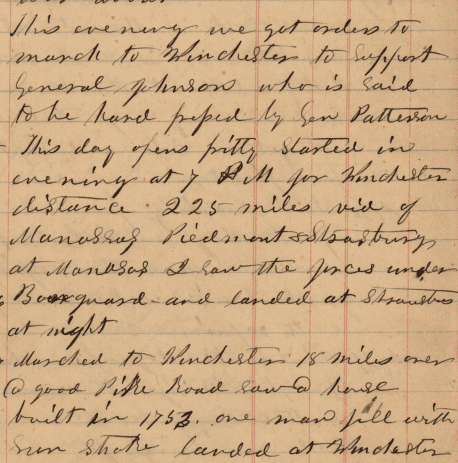 This evening we got orders to
march to Winchester to support
General Johnson who is said
to be hard presed by Gen Patterson
This day opens pritty started in
evening at 7 PM for Winchester
distance 225 miles via of
Manassas Piedmont & Strasburg
at Manasas I saw the forces under
guard and landed at Strausbur
at night
Marched to Winchester 18 miles over
a good Pike Road saw a house
built in 1753. one man fell with
sun stroke landed at Winchester